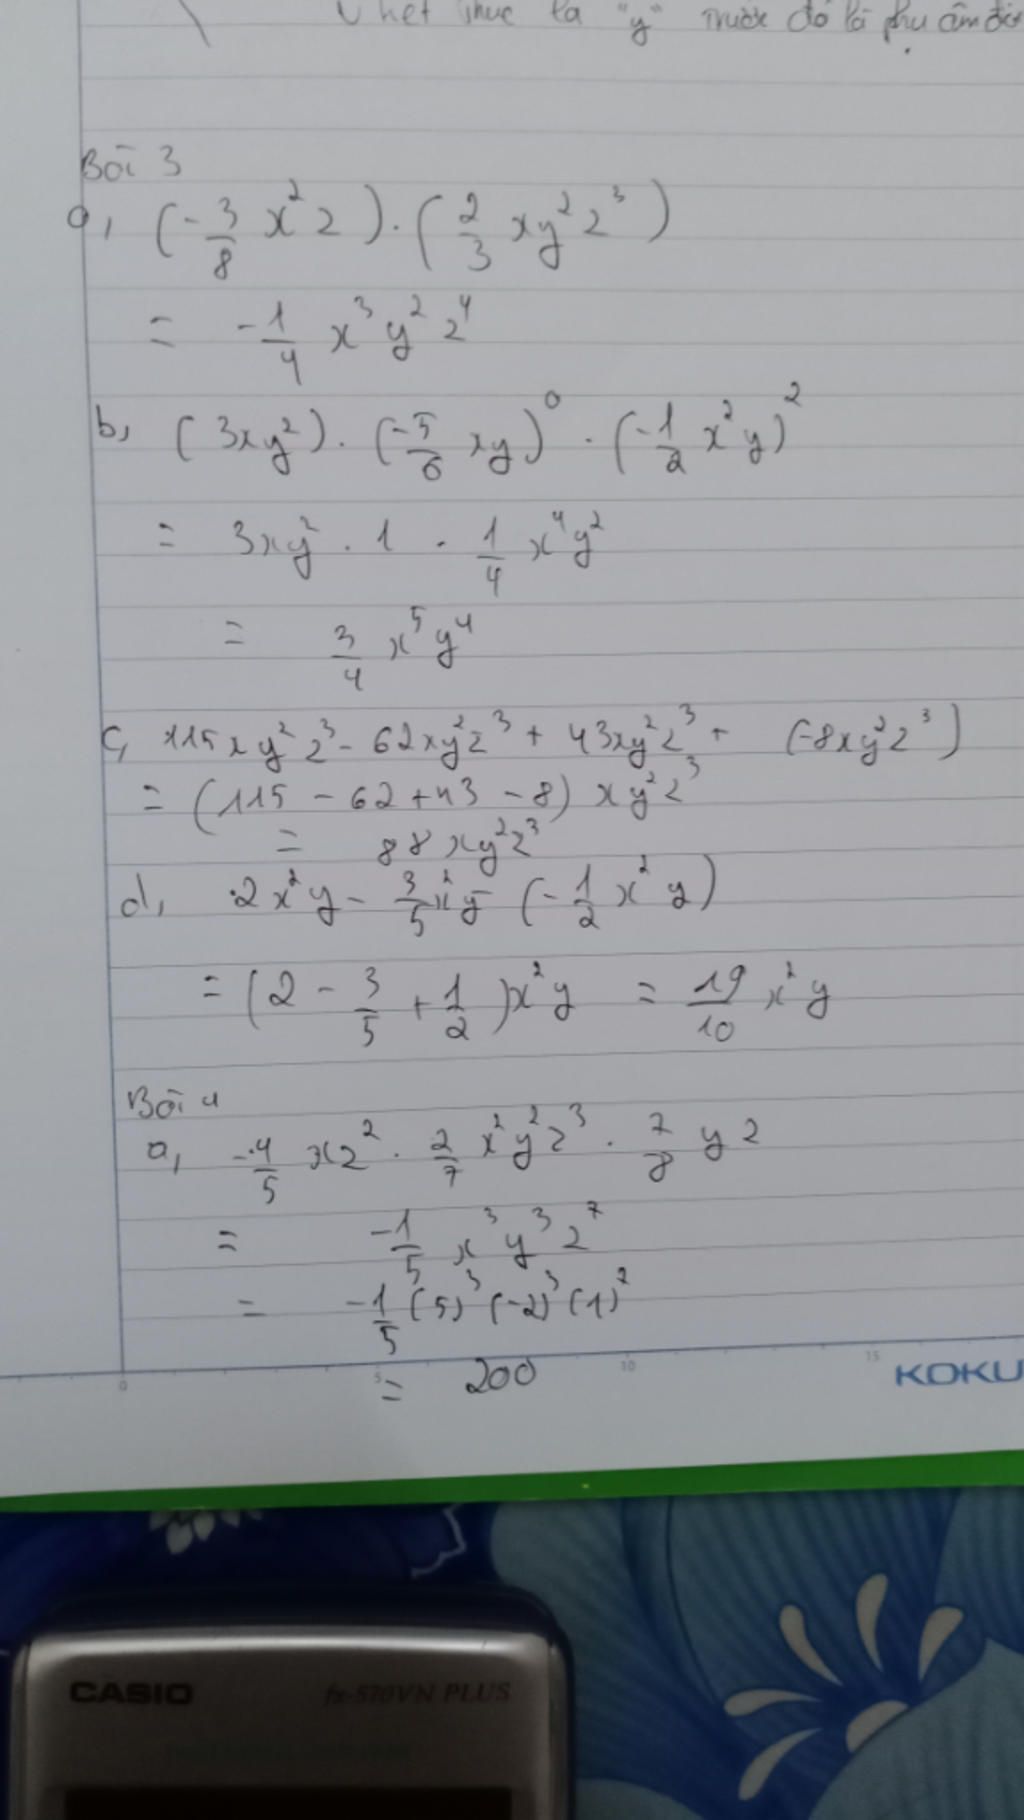 kết thúc là "y" trước đó là phụ âm đôi
Bài 3
a, (-3/8 x²z).(2/3 xy²z³)
= -1/4 x³y²z⁴
b, (3xy²).(-5/6 xy)⁰.(-1/2 x²y)²
= 3xy².1.1/4 x⁴y²
= 3/4 x⁵y⁴
c, 115xy²z³ - 62xy²z³ + 43xy²z³ + (-8xy²z³)
= (115 - 62 + 43 - 8) xy²z³
= 88xy²z³
d, 2x²y - 3/5 x²y - (-1/2 x²y)
= (2 - 3/5 + 1/2)x²y = 19/10 x²y
Bài 4
a, -4/5 xz².2/7 x²y²z³.7/8 yz
= -1/5 x³y³z⁷
= -1/5 (5)³(-2)³(1)⁷
= 200
0 5 10 15
KOKU
CASIO fx-570VN PLUS